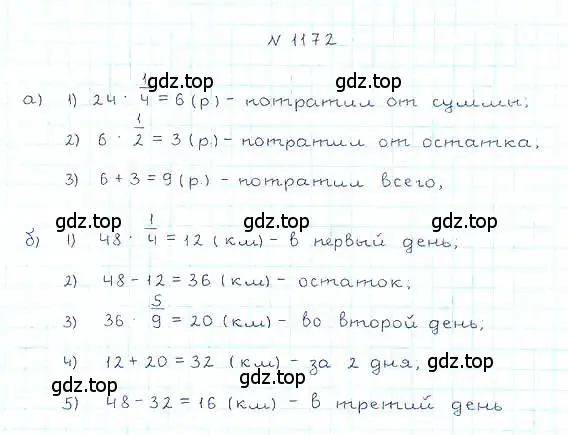 N 1172
а) 1) 24 · 1/4 = 6 (р) - потратил от суммы;
2) 6 · 1/2 = 3 (р.) - потратил от остатка;
3) 6 + 3 = 9 (р.) - потратил всего,
б) 1) 48 · 1/4 = 12 (км) - в первый день;
2) 48 - 12 = 36 (км) - остаток;
3) 36 · 5/9 = 20 (км) - во второй день;
4) 12 + 20 = 32 (км) - за 2 дня,
5) 48 - 32 = 16 (км) - в третий день
gdz.top gdz.top
gdz.top gdz.top
gdz.top gdz.top
gdz.top gdz.top
gdz.top gdz.top
gdz.top
gdz.top gdz.top